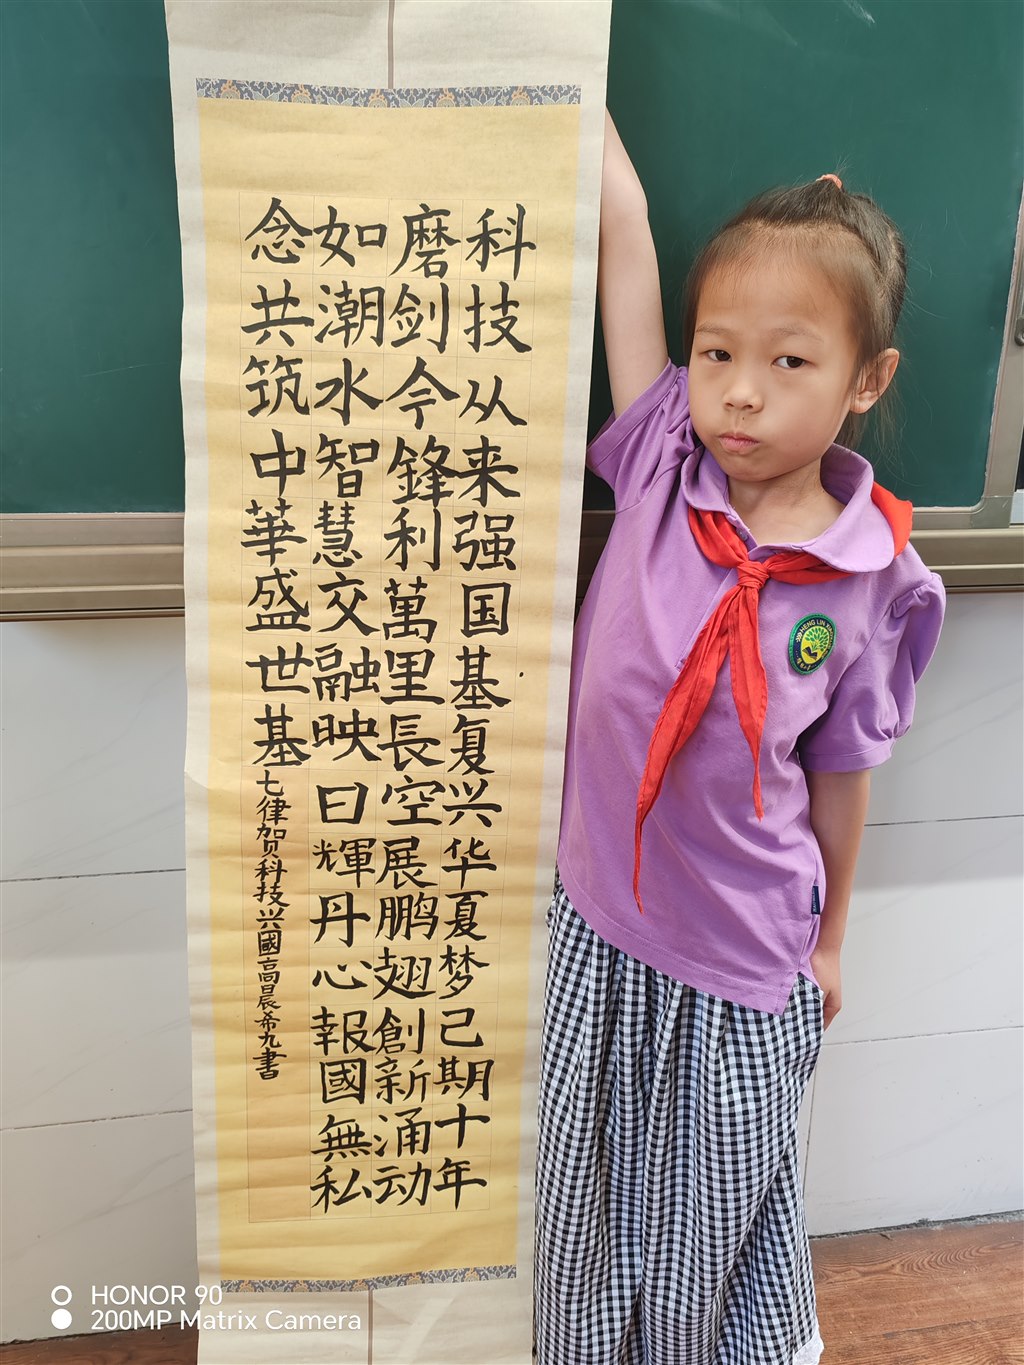 科技从来强国基复兴华夏梦己期十年
磨剑今鋒利萬里長空展鹏翅創新涌动
如潮水智慧交融映日輝丹心報國無私
念共筑中華盛世基
七律贺科技兴國高晨希九書
HENG LIN
HONOR 90
200MP Matrix Camera